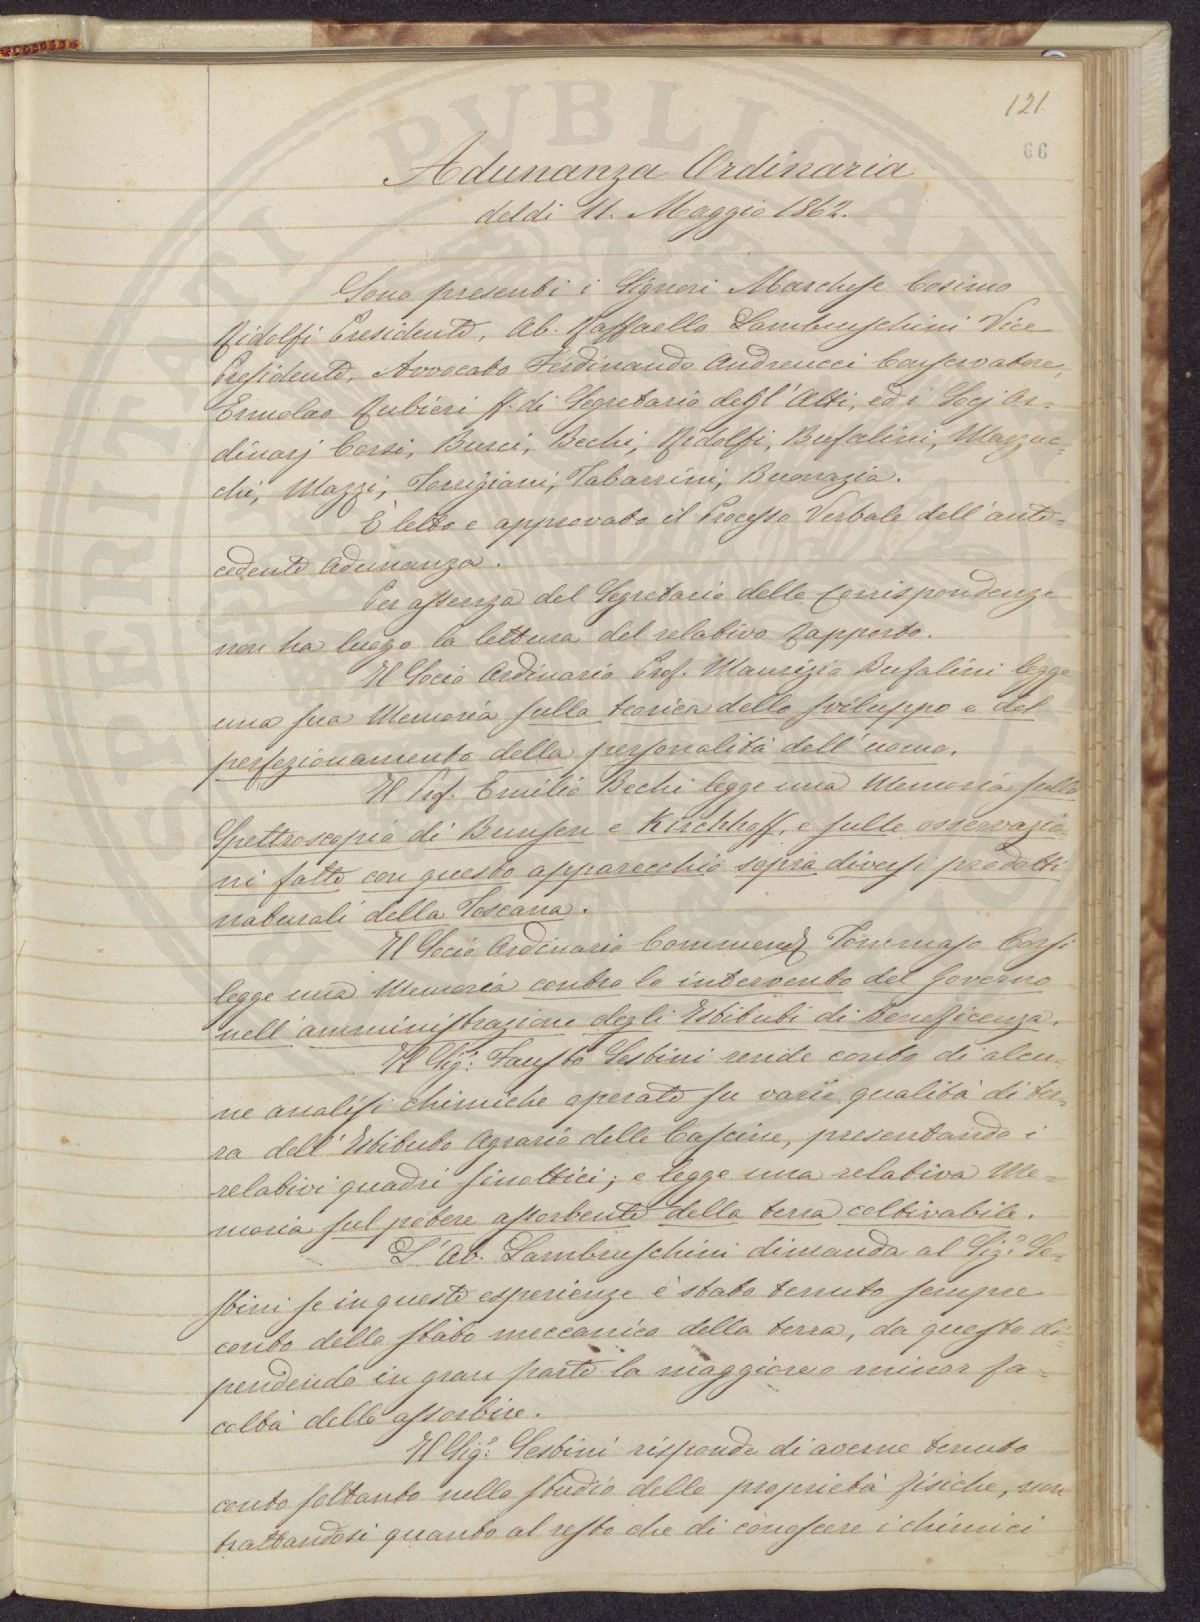 121
66
Adunanza Ordinaria
del dì 11. Maggio 1862.
Sono presenti i Signori Marchese Cosimo
Ridolfi Presidente, Ab. Raffaello Lambruschini Vice
Presidente, Avvocato Ferdinando Andreucci Conservatore,
Ermolao Rubieri ff. di Segretario degl'Atti, ed i Socj Or-
dinarj Corsi, Burci, Bechi, Ridolfi, Bufalini, Marzuc-
chi, Mazzi, Torrigiani, Tabarrini, Buonazia.
È letto e approvato il Processo Verbale dell'ante-
cedente adunanza.
Per assenza del Segretario delle Corrispondenze
non ha luogo la lettura del relativo rapporto.
Il Socio Ordinario Prof. Maurizio Bufalini legge
una sua Memoria sulla teorica dello sviluppo e del
perfezionamento della personalità dell'uomo.
Il Prof. Emilio Bechi legge una Memoria sulla
Spettroscopia di Bunsen e Kirchhoff, e sulle osservazio-
ni fatte con questo apparecchio sopra diversi prodotti
naturali della Toscana.
Il Socio Ordinario Commend. Tommaso Corsi
legge una Memoria contro lo intervento del Governo
nell'amministrazione degli Istituti di Beneficenza.
Il Sig.r Fausto Sestini rende conto di alcu-
ne analisi chimiche operate su varie qualità di ter-
ra dell'Istituto Agrario delle Cascine, presentando i
relativi quadri sinottici; e legge una relativa Me-
moria sul potere assorbente della terra coltivabile.
L'Ab. Lambruschini dimanda al Sig.r Se-
stini se in queste esperienze è stato tenuto sempre
conto dello stato meccanico della terra, da questo di-
pendendo in gran parte la maggiore o minor fa-
coltà dello assorbire.
Il Sig.r Sestini risponde di averne tenuto
conto soltanto nello studio delle proprietà fisiche, non
trattandosi quanto al resto che di conoscere i chimici